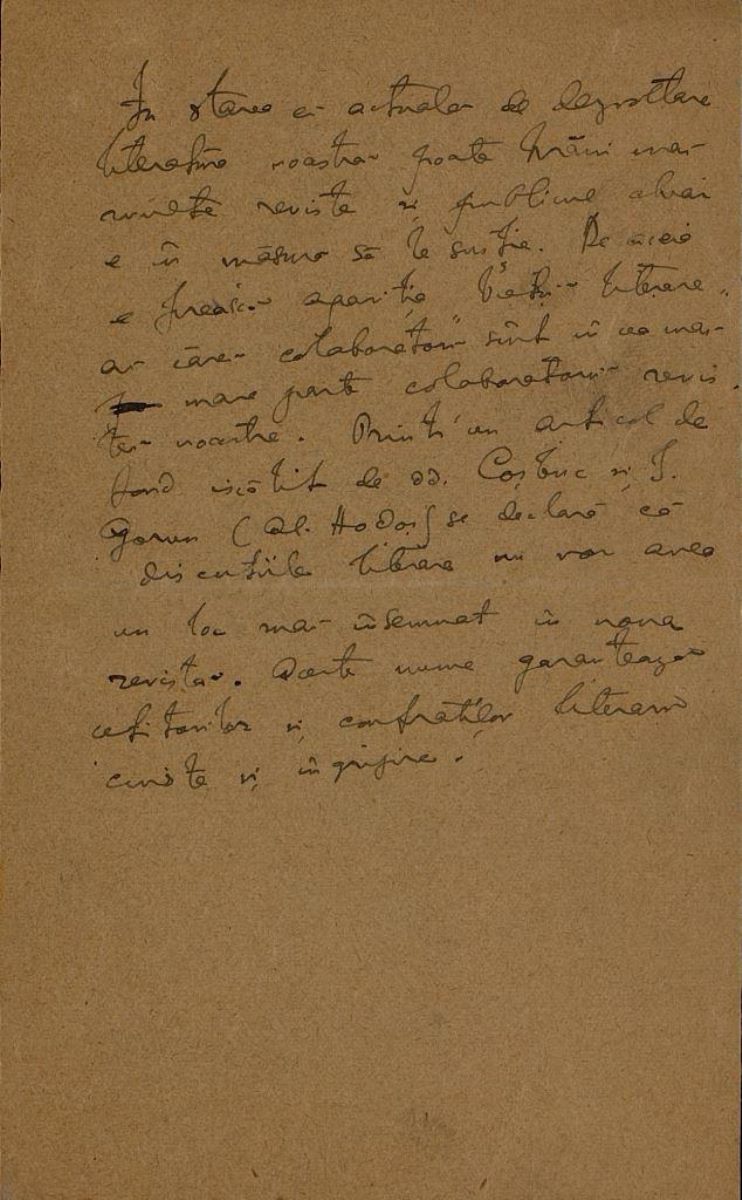 În starea ei actuală de dezvoltare
literatura noastră poate hrăni mai
multe reviste și publicul chiar
e în măsură să le susție. De aceia
e firească apariția Vieții literare,
ai cărei colaboratori sînt în cea mai
mare parte colaboratorii revis
tei noastre. Printr'un articol de
fond iscălit de dd. Coșbuc și I.
Gorun (Al. Hodoș) se declară că
discuțiile literare nu vor avea
un loc mai însemnat în noua
revistă. Aceste nume garantează
cetitorilor și confraților literari
cinste și îngrijire.